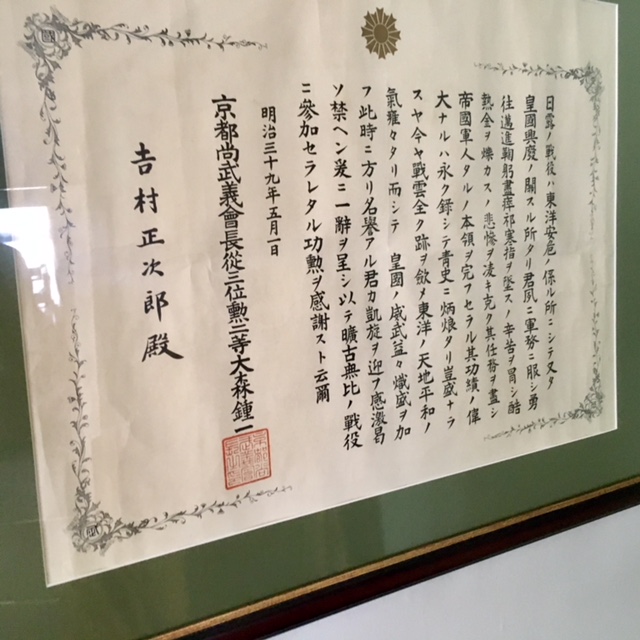 日露ノ戦役ハ東洋安危ノ係ル所ニシテ又タ
皇國興廢ノ關スル所タリ君夙ニ軍務ニ服シ勇
往邁進鞠躬盡瘁祁寒指ヲ墜スノ辛苦ヲ冐シ酷
熱金ヲ爍カスノ悲惨ヲ凌キ克ク其任務ヲ盡シ
帝國軍人タルノ本領ヲ完フセラル其功績ノ偉
大ナルハ永ク録シテ青史ニ炳焕タリ豈盛ナラ
スヤ今ヤ戰雲全ク跡ヲ斂メ東洋ノ天地平和ノ
氣靄々タリ而シテ 皇國ノ威武益々熾盛ヲ加
フ此時ニ方リ名譽アル君カ凱旋ヲ迎フ感激曷
ソ禁ヘン爰ニ一辭ヲ呈シ以テ曠古無比ノ戰役
ニ參加セラレタル功勲ヲ感謝スト云爾
明治三十九年五月一日
京都尚武義會長從三位勲二等大森鍾一
吉村正次郎殿
國
國